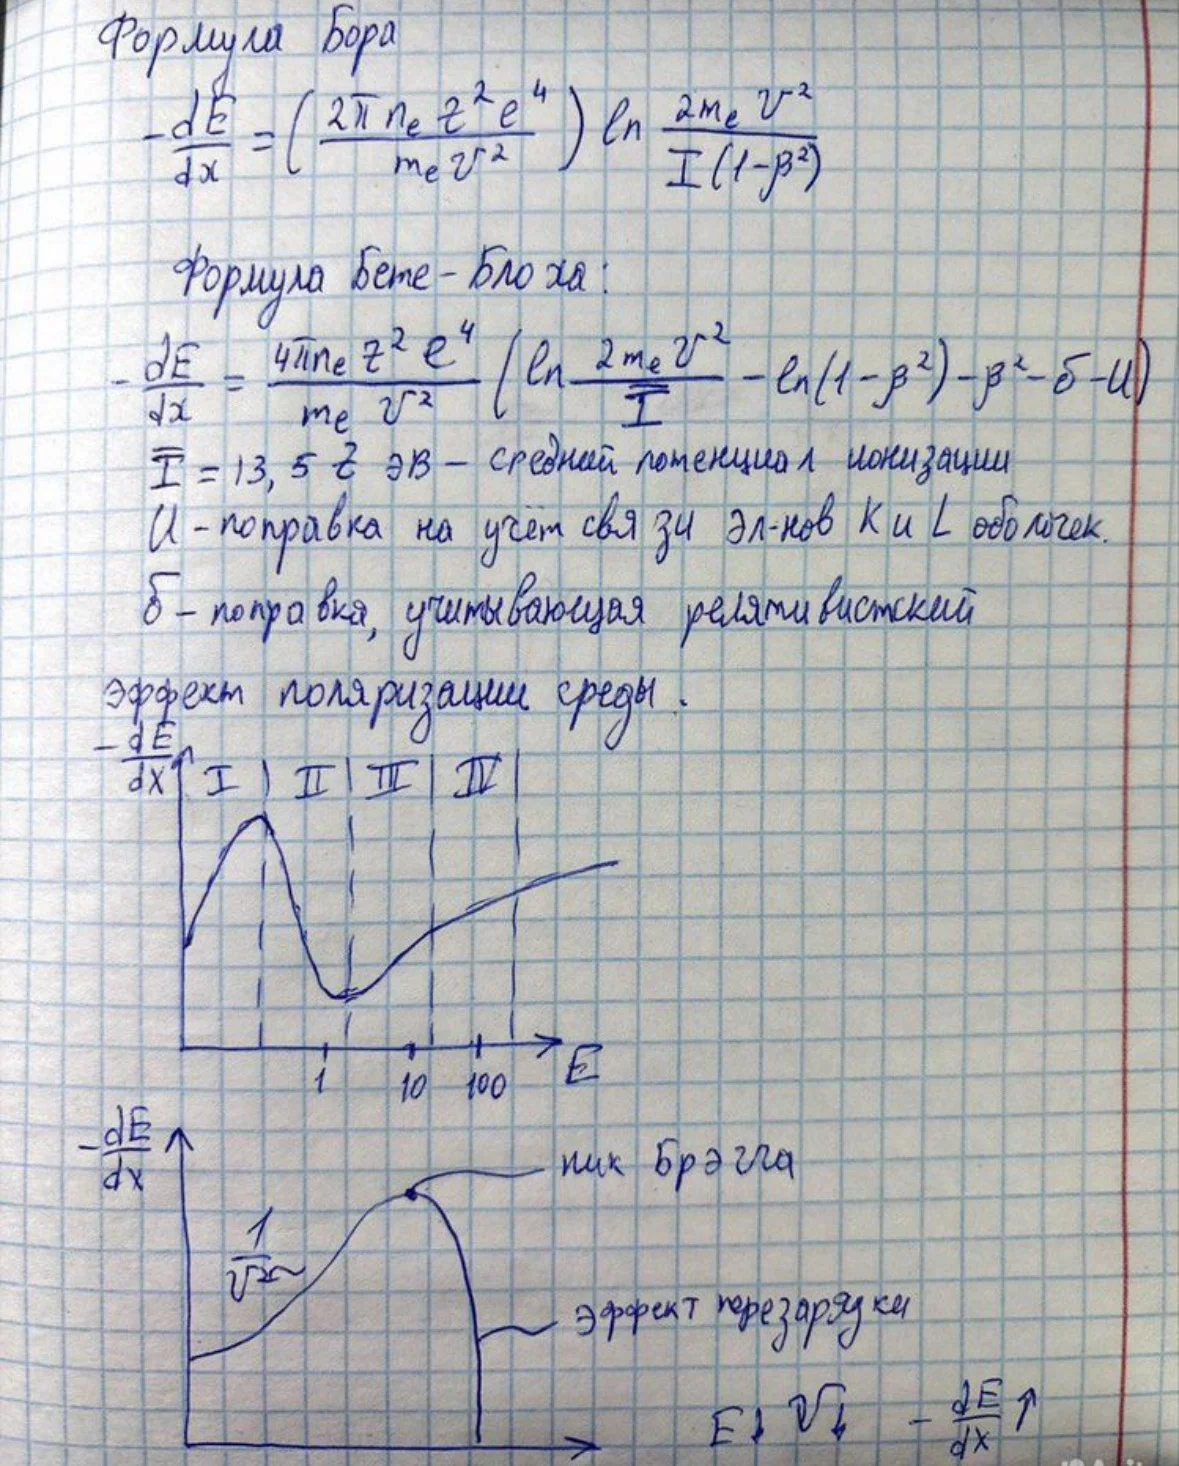 Формула Бора
-dE/dx = (2π nₑ z² e⁴ / mₑ v²) ln 2mₑ v² / I(1-β²)
Формула Бете-Блоха:
-dE/dx = 4πnₑ z² e⁴ / mₑ v² (ln 2mₑ v² / Ī - ln(1-β²) - β² - δ - U)
Ī = 13,5 z эВ - средний потенциал ионизации
U - поправка на учёт связи эл-нов K и L оболочек.
δ - поправка, учитывающая релятивистский
эффект поляризации среды.
-dE/dx
I II III IV
1 10 100 E
-dE/dx
пик Брэгга
1/v²
эффект перезарядки
E↓ v↓ -dE/dx ↑